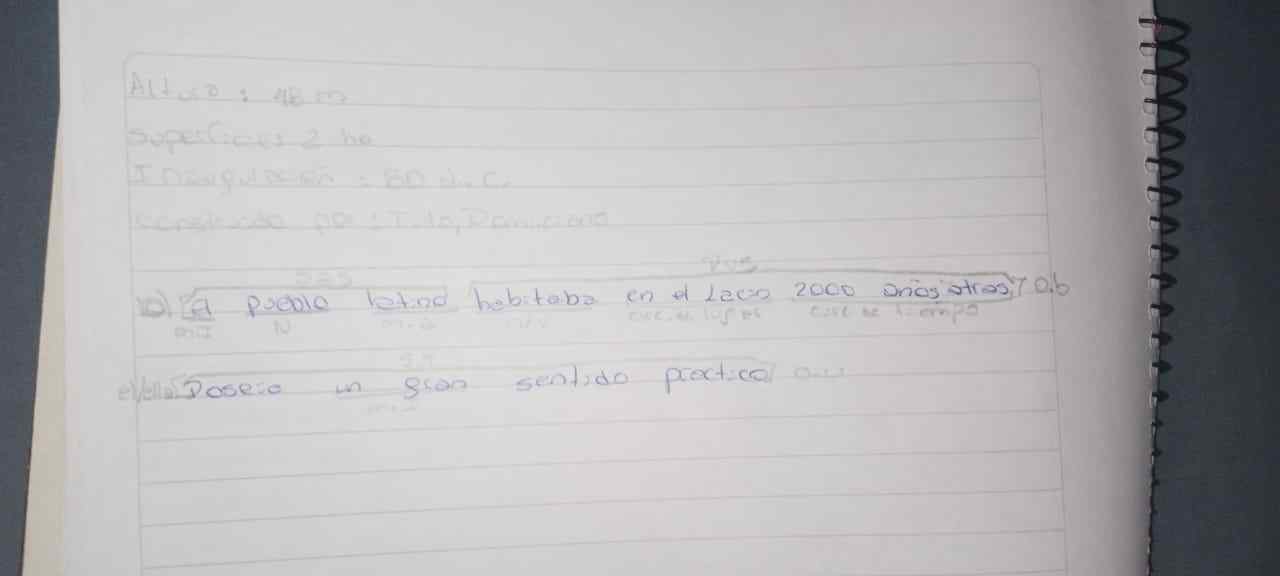 Altura : 48 m
Superficies 2 ha
Inauguración : 80 d.C.
Construido por : Tito, Domiciano
S.E.S P.V.S
10) [El pueblo latino habitaba en el Lacio 2000 años atras] O.b
M.D N m.d N.V circ. de lugar circ de tiempo
S.T
el/ella: Poseia un gran sentido practico
m.d